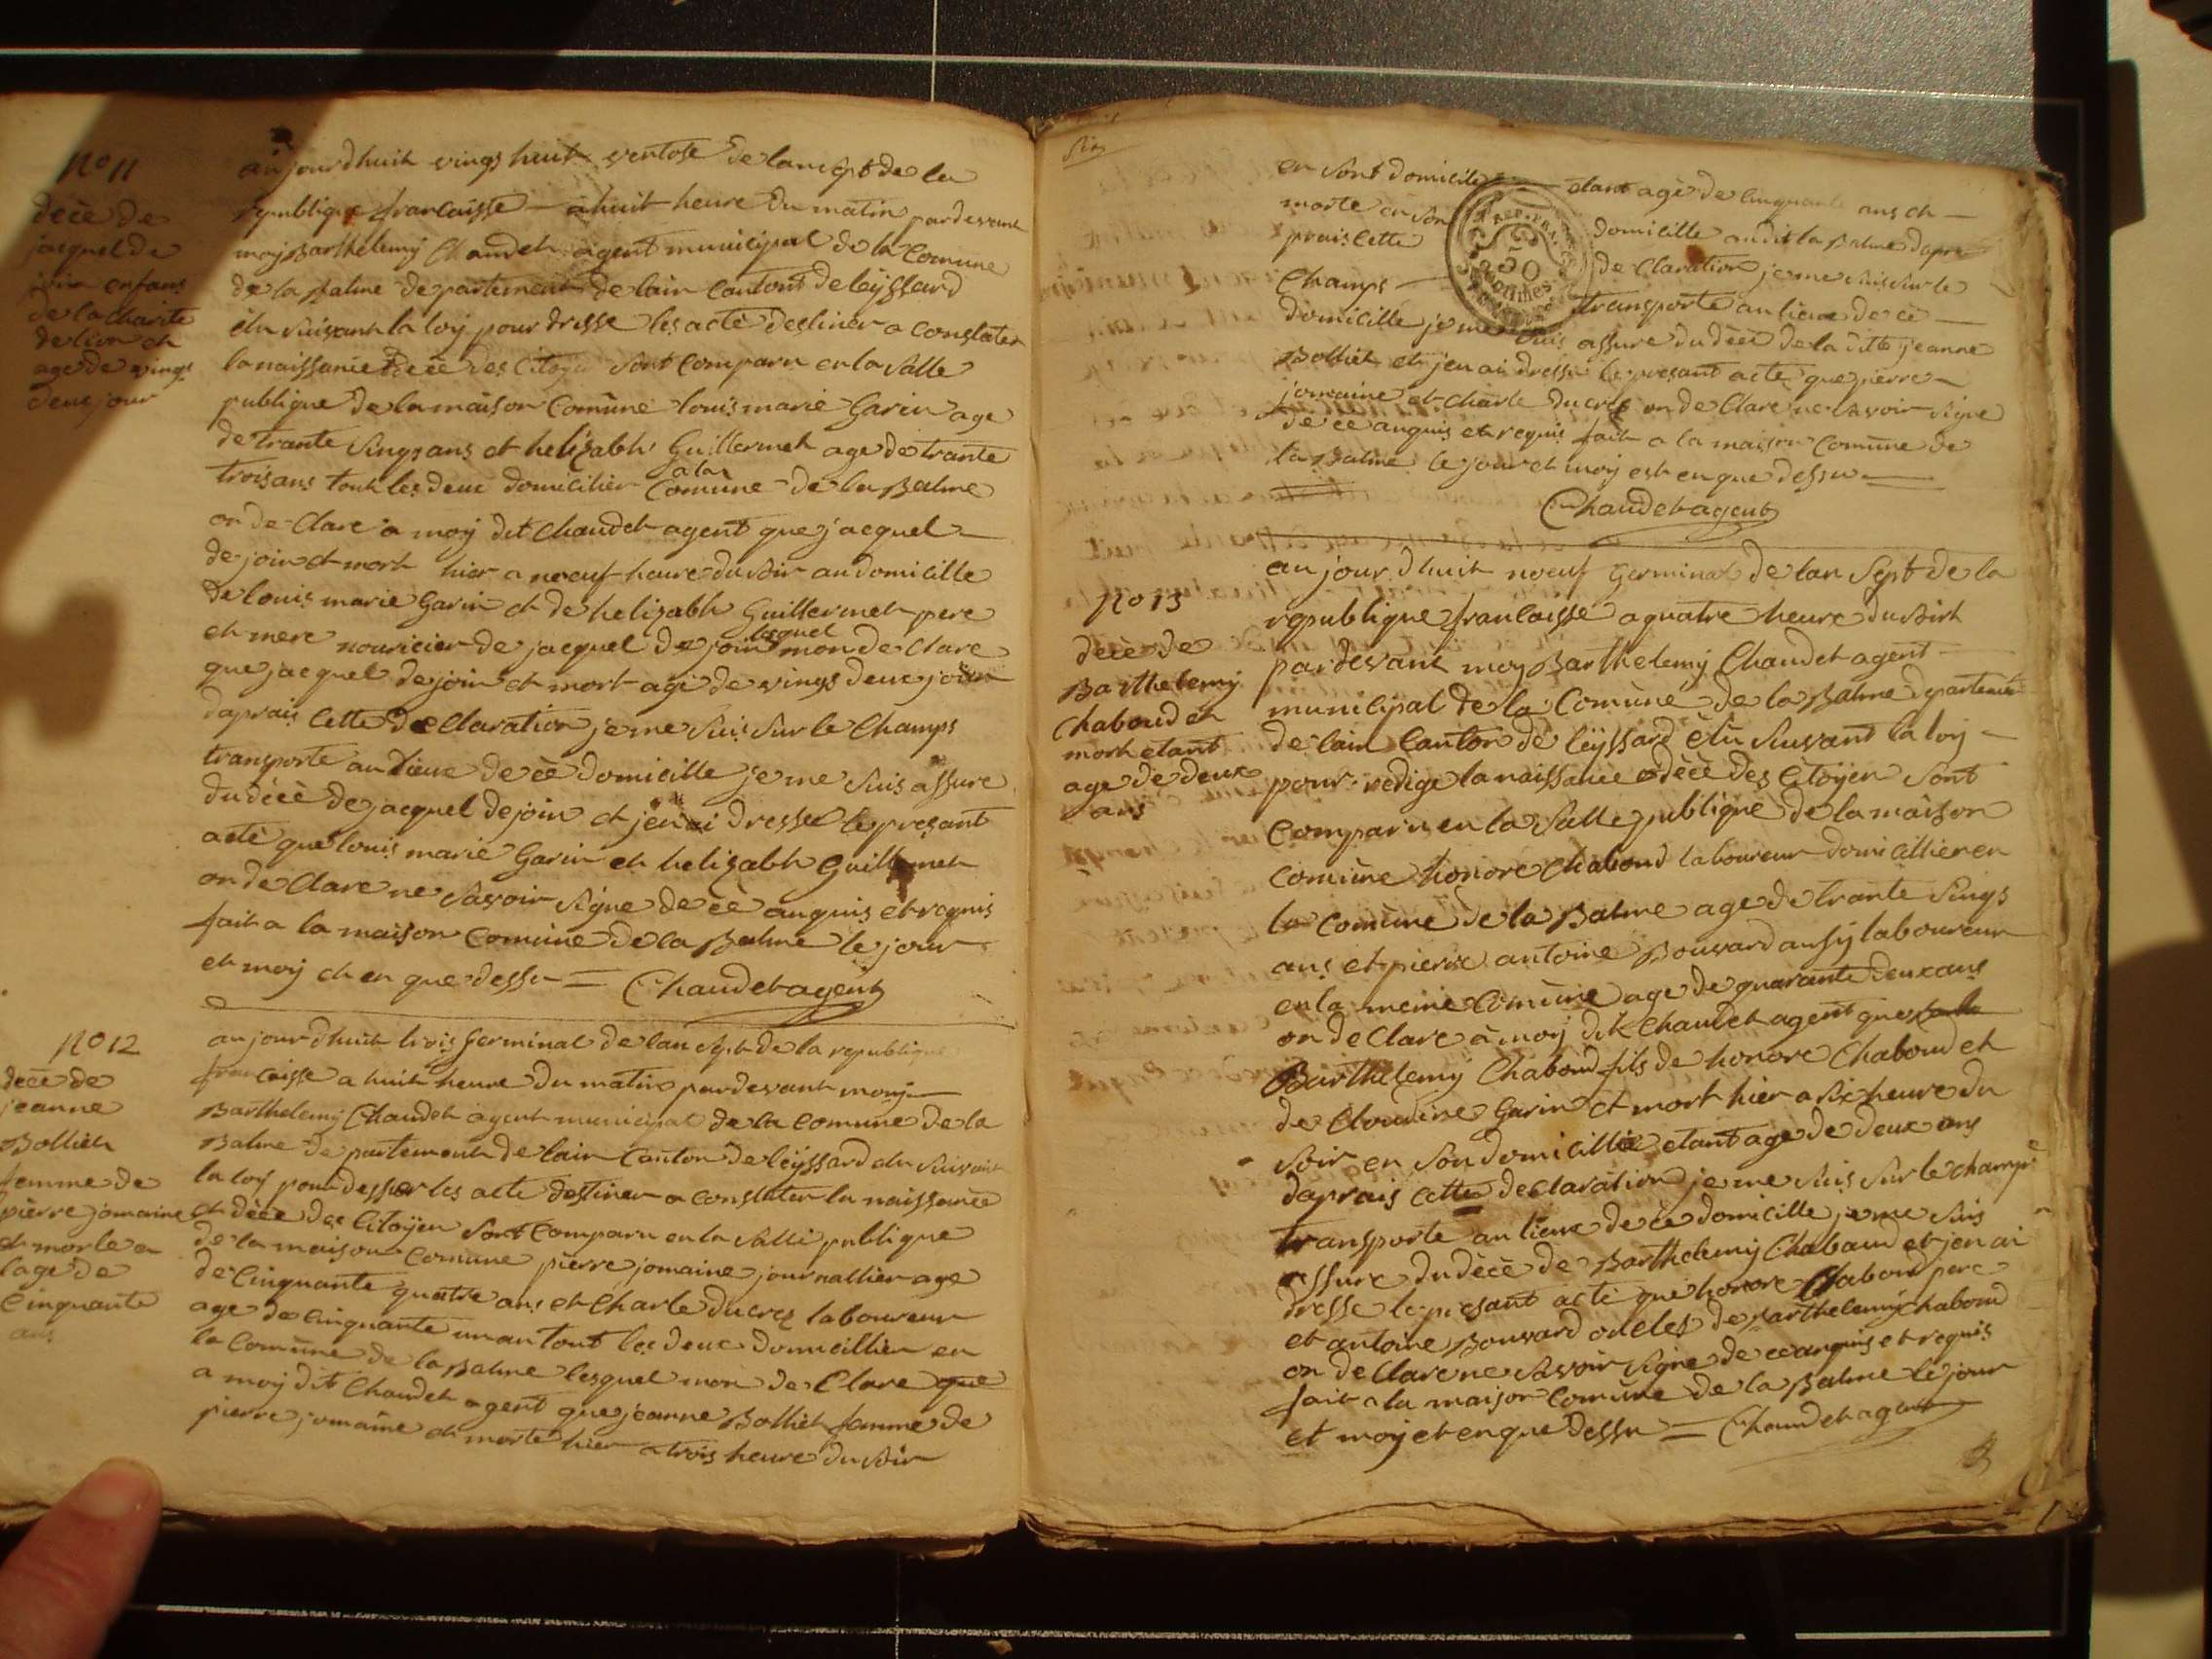 no 11
decè de
jacquel de
join enfans
de la charite
de lion et
age de vings
deux jour
aujourdhuit vings huit ventose de lan sept de la
republique francaisse a huit heure du matin pardevant
moy Barthelemÿ Chaudet agent municipal de la Comune
de la Balme departement de lain Cantont de leÿssard
élu suivant la loÿ pour dresse les actè destiner a Constater
la naissance decè des Citoyen sont Comparu en la salle
publique de la maison Comùne louis marie Garin age
de trante sinqs ans et helizabh Guillermet age de trante
trois ans tout les deux domicilier a la Comùne de la Balme
on de Clare a moy dit Chaudet agent que jacquel
de join et mort hier a noeuf heure du soir au domicille
de louis marie Garin et de helizabh Guillermet pere
et mere nouricier de jacquel de join lequel mon de Clare
que jacquel de join et mort agé de vings deux jour
daprais Cette de Claration je me suis sur le Champs
transporte au lieux de cè domicille je me suis assure
du décè de jacquel de join et jen ai dresse le presant
actè que louis marie Garin et helizabh Guillermet
on de Clare ne savoir signe de cè anquis et requis
fait a la maison Comùne de la Balme le jour
et moy et en que dessu = Chaudet agent
no 12
decè de
jeanne
Bolliet
femme de
pierre jomaine
et morte a
lage de
Cinquante
ans
aujourdhuit trois Germinal de lan sept de la republique
francaisse a huit heure du matin pardevant moy
Barthelemÿ Chaudet agent municipal de la Comune de la
Balme departement de lain Canton de leÿssard elu suivant
la loÿ pour desser les acte destiner a Constater la naissance
et dècè des Citoÿen sont Comparu en la salle publique
de la maison Comune pierre jomaine journallier age
de Cinquante quatre ans et Charle ducrez laboureur
age de Cinquante un an tout les deux domicillier en
la Comùne de la Balme lesquel mon de Clare que
a moy dit Chaudet agent que jeanne Bolliet femme de
pierre jomaine et morte hier a trois heure du soir
en sont domicile etant agè de Cinquante ans et
morte en son domicille audit la Balme dapre
prais Cette de Claration je me suis sur le
Champs transporte au lieux de cè
domicille je me suis assure du decè de la ditte jeanne
Bolliet et jen ai dresse le presant acte que pierre
jomaine et Charle ducrez on de Clare ne savoir signe
de cè anquis et requis fait a la maison Comùne de
la Balme le jour et moy est en que dessu
Chaudet agent
REP. FRA.
50
centimes
no 13
decè de
Barthelemÿ
Chaboud et
mort etant
age de deux
ans
aujourdhuit noeuf Germinal de lan sept de la
republique francaisse a quatre heure du soir
pardevant moy Barthelemÿ Chaudet agent
municipal de la Comùne de la Balme departement
de lain Canton de leÿssard élu suivant la loy
pour redige la naissance decè des Citoÿen sont
Comparu en la salle publique de la maison
Comùne honore Chaboud laboureur domicillier en
la Comùne de la Balme age de trante sinqs
ans et pierre antoine Bouvard ausÿ laboureur
en la meme Comùne age de quarante deux ans
on de Clare à moy dit Chaudet agent que
Barthelemÿ Chaboud fils de honore Chaboud et
de Cloudine Garin et mort hier a six heure du
soir en son domicille etant age de deux ans
daprais Cette declaration je me suis sur le champs
transporte au lieux de ce domicille je me suis
assure du dècè de Barthelemÿ Chaboud et jen ai
dresse le presant acte que honore Chaboud pere
et antoine Bouvard oncles de Barthelemÿ Chaboud
on de Clare ne savoir signe de ce anquis et requis
fait a la maison Comùne de la Balme le jour
et moy et en que dessu = Chaudet agent